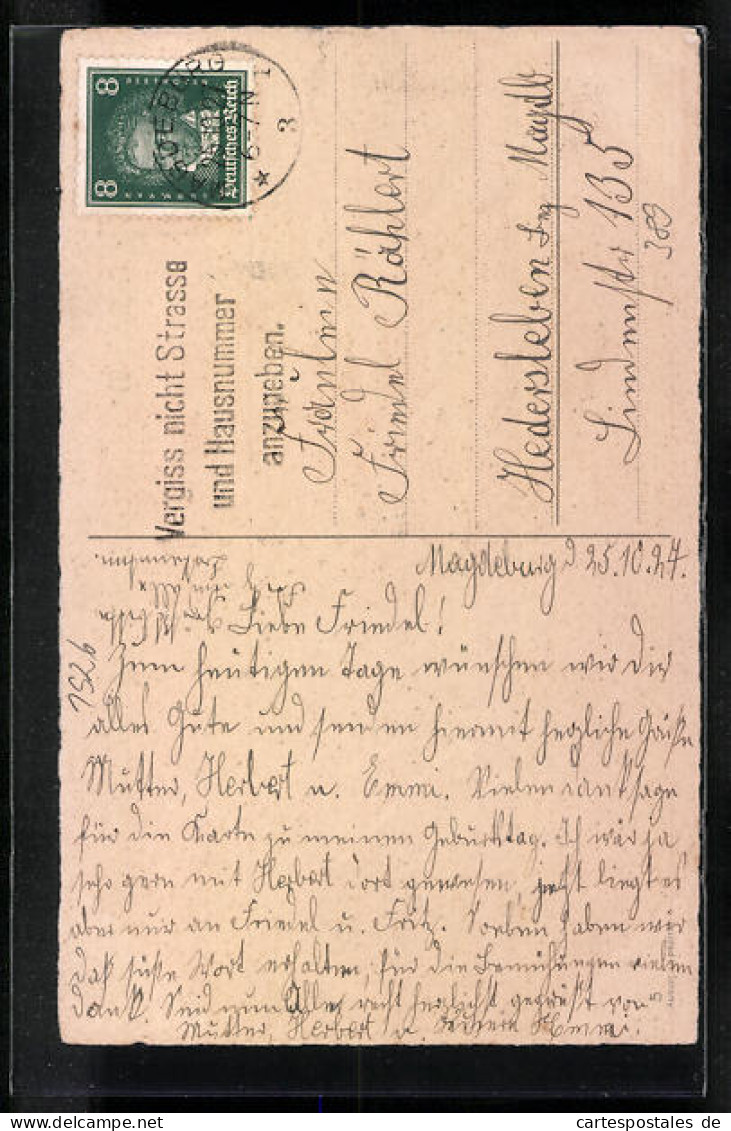 8 8
Deutsches Reich
MAGDEBURG
6-7 N
* 3
Vergiss nicht Strasse
und Hausnummer
anzugeben.
Fräulein
Friedel Rählert
Hedersleben Bez Magdb
Lindenstr 135
389
1526
Magdeburg d 25.10.27.
Liebe Friedel!
Zum heutigen Tage wünschen wir dir
alles Gute und senden hiermit herzliche Grüße
Mutter, Herbert u. Emmi. Vielen dank sage
für die Karte zu meinen Geburtstag. Ich wär ja
sehr gern mit Herbert dort gewesen, jetzt liegt es
aber nur an Friedel u. Fritz. Soeben haben wir
daß süße Wort erhalten, für die Bemühungen vielen
dank. Seid nun Alle recht herzlichst gegrüßt von
Mutter, Herbert u. Emmi.
cartespostales de